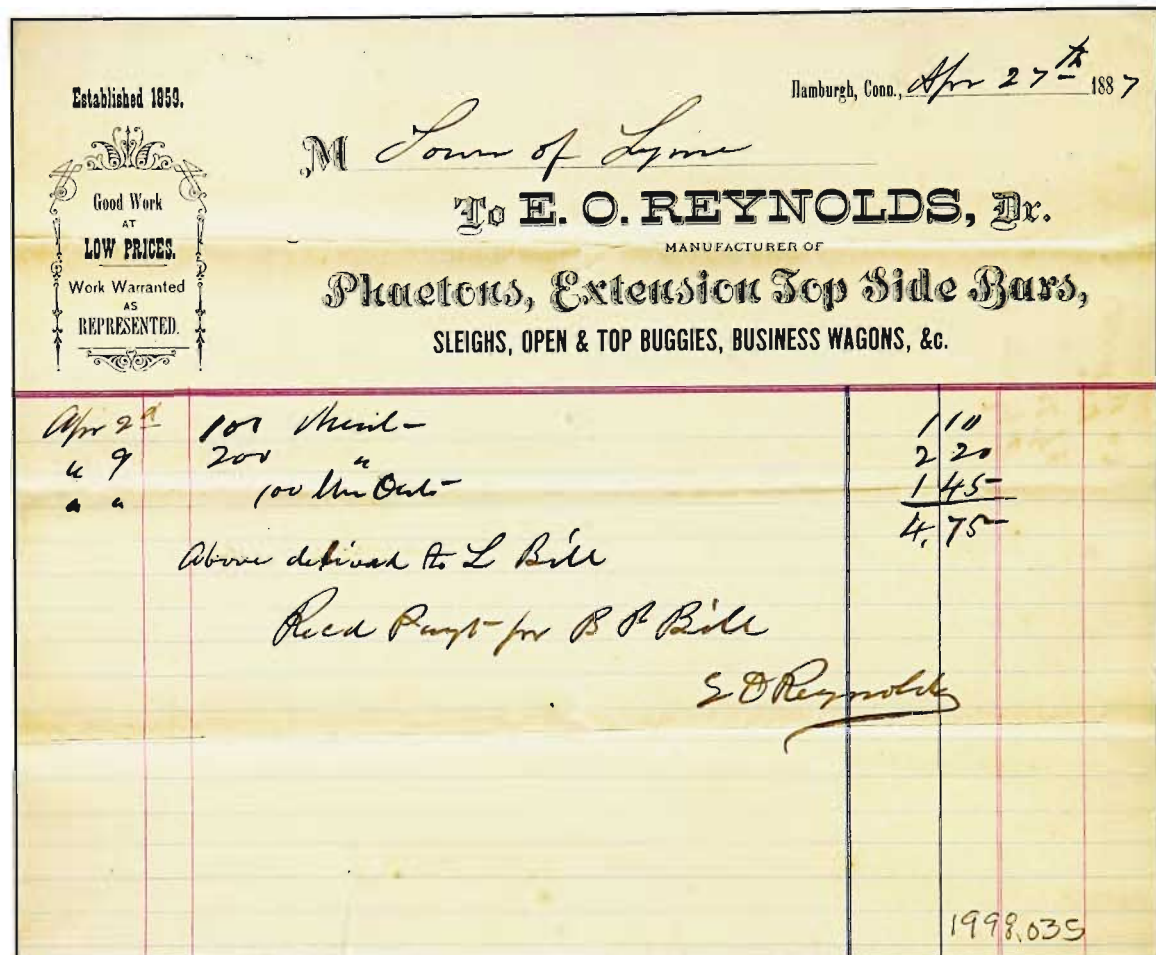 Established 1859.
Good Work
AT
LOW PRICES.
Work Warranted
AS
REPRESENTED.
Hamburgh, Conn., Apr 27th 1887
M Town of Lyme
To E. O. REYNOLDS, Dr.
MANUFACTURER OF
Phaetons, Extension Top Side Bars,
SLEIGHS, OPEN & TOP BUGGIES, BUSINESS WAGONS, &c.
Apr 2d 100 1 10
" 9 200 " 2 20
" " 100 1 45
4.75
Above to L Bill
Recd Payt for B P Bill
E O Reynolds
1998.035